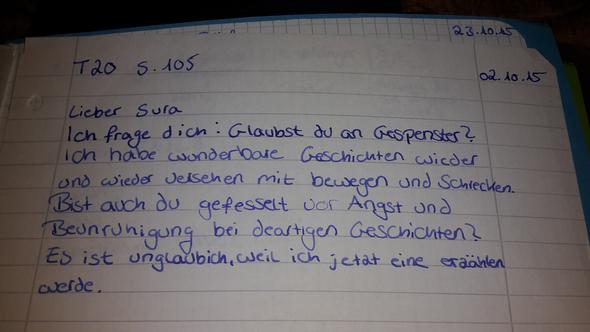 23.10.15
T20 S.105
02.10.15
Lieber Sura
Ich frage dich: Glaubst du an Gespenster?
Ich habe wunderbare Geschichten wieder
und wieder velsehen mit bewegen und Schrecken.
Bist auch du gefesselt vor Angst und
Beunruhigung bei deartigen Geschichten?
Es ist unglaubich, weil ich jetzt eine erzählen
werde.